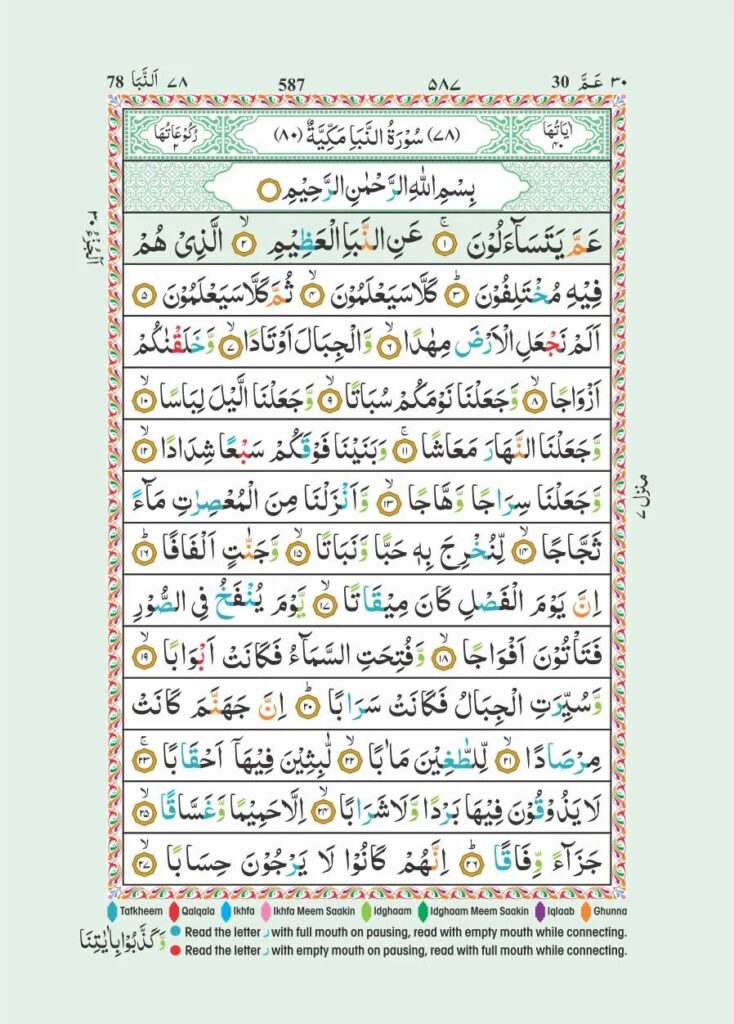 78 اَلنَّبَا ٧٨ 587 ۵۸۷ 30 عَمَّ ٣٠
اٰيَاتُهَا ٤٠ (٧٨) سُوْرَةُ النَّبَاِ مَكِّيَّةٌ (٨٠) رُكُوْعَاتُهَا ٢
بِسْمِ اللّٰهِ الرَّحْمٰنِ الرَّحِيْمِ
عَمَّ يَتَسَآءَلُوْنَ ۚ‏ ١ عَنِ النَّبَاِ الْعَظِيْمِ ۙ‏ ٢ الَّذِىْ هُمْ
فِيْهِ مُخْتَلِفُوْنَ ؕ‏ ٣ كَلَّا سَيَعْلَمُوْنَ ۙ‏ ٤ ثُمَّ كَلَّا سَيَعْلَمُوْنَ ٥
اَلَمْ نَجْعَلِ الْاَرْضَ مِهٰدًا ۙ‏ ٦ وَّالْجِبَالَ اَوْتَادًا ۙ‏ ٧ وَّخَلَقْنٰكُمْ
اَزْوَاجًا ۙ‏ ٨ وَّجَعَلْنَا نَوْمَكُمْ سُبَاتًا ۙ‏ ٩ وَّجَعَلْنَا الَّيْلَ لِبَاسًا ۙ‏ ١٠
وَّجَعَلْنَا النَّهَارَ مَعَاشًا ۙ‏ ١١ وَبَنَيْنَا فَوْقَكُمْ سَبْعًا شِدَادًا ۙ‏ ١٢
وَّجَعَلْنَا سِرَاجًا وَّهَّاجًا ۙ‏ ١٣ وَّاَنْزَلْنَا مِنَ الْمُعْصِرٰتِ مَآءً
ثَجَّاجًا ۙ‏ ١٤ لِّنُخْرِجَ بِهٖ حَبًّا وَّنَبَاتًا ۙ‏ ١٥ وَّجَنّٰتٍ اَلْفَافًا ؕ‏ ١٦
اِنَّ يَوْمَ الْفَصْلِ كَانَ مِيْقَاتًا ۙ‏ ١٧ يَّوْمَ يُنْفَخُ فِى الصُّوْرِ
فَتَاْتُوْنَ اَفْوَاجًا ۙ‏ ١٨ وَّفُتِحَتِ السَّمَآءُ فَكَانَتْ اَبْوَابًا ۙ‏ ١٩
وَّسُيِّرَتِ الْجِبَالُ فَكَانَتْ سَرَابًا ؕ‏ ٢٠ اِنَّ جَهَنَّمَ كَانَتْ
مِرْصَادًا ۙ‏ ٢١ لِّلطّٰغِيْنَ مَاٰبًا ۙ‏ ٢٢ لّٰبِثِيْنَ فِيْهَاۤ اَحْقَابًا ۚ‏ ٢٣
لَا يَذُوْقُوْنَ فِيْهَا بَرْدًا وَّلَا شَرَابًا ۙ‏ ٢٤ اِلَّا حَمِيْمًا وَّغَسَّاقًا ۙ‏ ٢٥
جَزَآءً وِّفَاقًا ؕ‏ ٢٦ اِنَّهُمْ كَانُوْا لَا يَرْجُوْنَ حِسَابًا ۙ‏ ٢٧
اَلْجُزْءُ ٣٠
منزل ٧
Tafkheem Qalqala Ikhfa Ikhfa Meem Saakin Idghaam Idghaam Meem Saakin Iqlaab Ghunna
Read the letter ر with full mouth on pausing, read with empty mouth while connecting.
Read the letter ر with empty mouth on pausing, read with full mouth while connecting.
وَّكَذَّبُوْا بِاٰيٰتِنَا